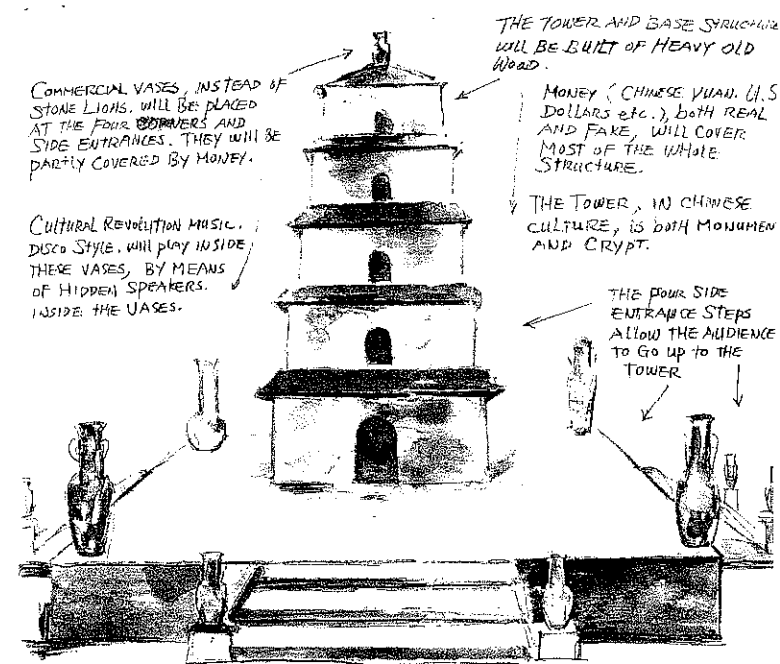 COMMERCIAL VASES, INSTEAD OF
STONE LIONS, WILL BE PLACED
AT THE FOUR CORNERS AND
SIDE ENTRANCES. THEY WILL BE
PARTLY COVERED BY MONEY.
CULTURAL REVOLUTION MUSIC.
DISCO STYLE. WILL PLAY INSIDE
THESE VASES, BY MEANS
OF HIDDEN SPEAKERS.
INSIDE THE VASES.
THE TOWER AND BASE STRUCTURE
WILL BE BUILT OF HEAVY OLD
WOOD.
MONEY (CHINESE YUAN. U.S
DOLLARS etc.), both REAL
AND FAKE, WILL COVER
MOST OF THE WHOLE
STRUCTURE.
THE TOWER, IN CHINESE
CULTURE, is both MONUMEN
AND CRYPT.
THE FOUR SIDE
ENTRANCE STEPS
ALLOW THE AUDIENCE
TO GO UP TO THE
TOWER